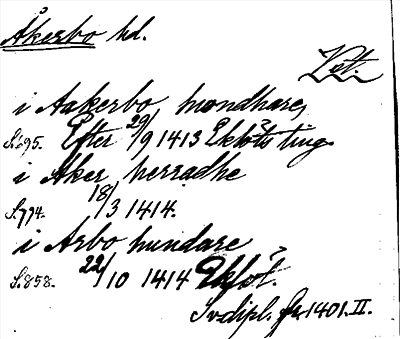 Åkerbo hd.
Vst.
i Aakerbo mondhare,
S.695. Efter 29/9 1413 Eklöts ting.
i Aker herradhe
S.774. 18/3 1414.
i Arbo hundare
S.858. 22/10 1414 Ekløt.
Sv. dipl. fr. 1401. II.